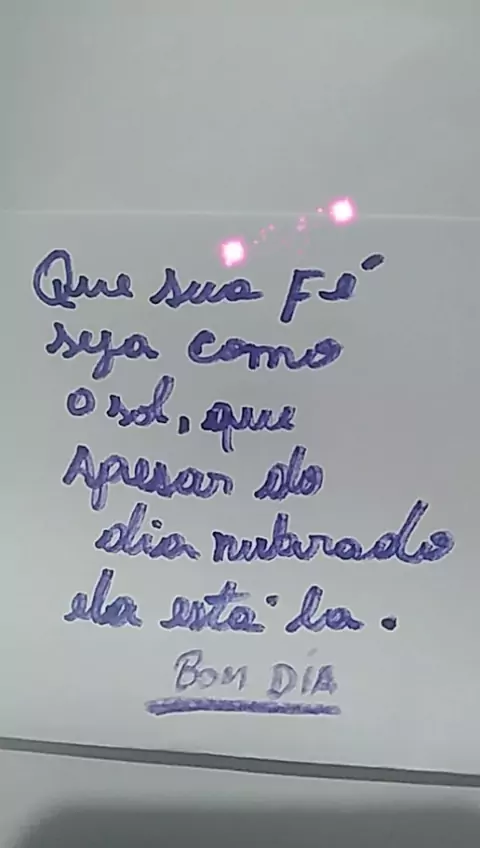 Que sua Fé
seja como
o sol, que
apesar do
dia nublado
ela está la.
BOM DIA